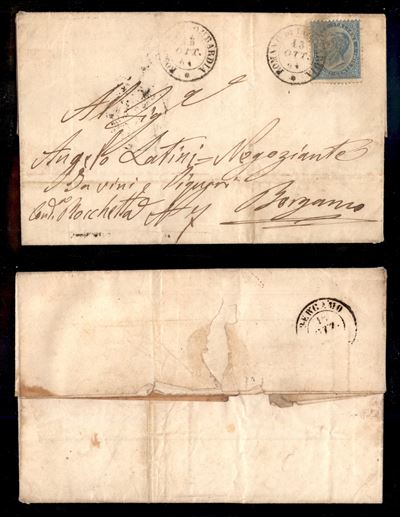 ROMANO DI LOMBARDIA
13
OTT.
64
ROMANO DI LOMBARDIA
13
OTT.
64
Al Sig.
Angelo Latini = Negoziante
Da vini e Liquori
Cont.ª Rocchetta N 7 Bergamo
BERGAMO
13
OTT.